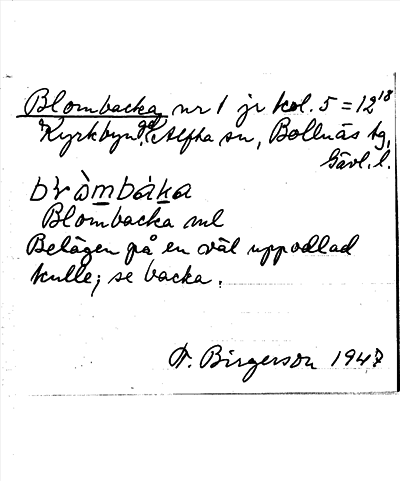 Blombacka nr 1 jr kol. 5 = 12 18
Kyrkbyn, Alfta sn, Bollnäs tg,
Gävl. l.
Blombacka ml
Belägen på en väl uppodlad
kulle; se backa.
F. Birgerson 1947